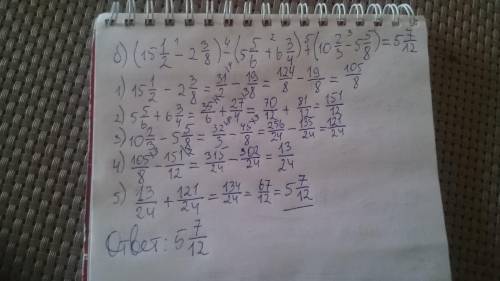 б) (15 1/2 - 2 3/8) - (5 5/6 + 6 3/4) + (10 2/3 - 5 5/8) = 5 7/12
1) 15 1/2 - 2 3/8 = 31/2 - 19/38 = 124/8 - 19/8 = 105/8
2) 5 5/6 + 6 3/4 = 35/6 + 27/4 = 70/12 + 81/12 = 151/12
3) 10 2/3 - 5 5/8 = 32/3 - 45/8 = 256/24 - 135/24 = 121/24
4) 105/8 - 151/12 = 315/24 - 302/24 = 13/24
5) 13/24 + 121/24 = 134/24 = 67/12 = 5 7/12
Ответ: 5 7/12